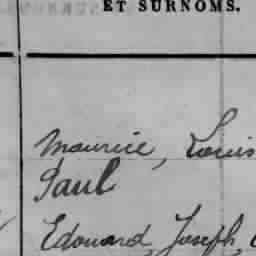 ET SURNOMS.
Maurice, Louis
Paul
Edouard, Joseph,